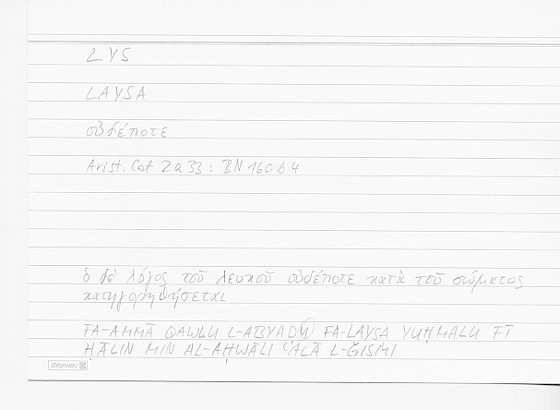 LYS
LAYSA
οὐδέποτε
Arist. Cat 2a33 : BN 160b4
ὁ δὲ λόγος τοῦ λευκοῦ οὐδέποτε κατὰ τοῦ σώματος
κατηγορηθήσεται
FA-AMMĀ QAWLU L-ABYADI FA-LAYSA YUḤMALU FĪ
ḤĀLIN MIN AL-AḤWĀLI ʿALĀ L-ǦISMI